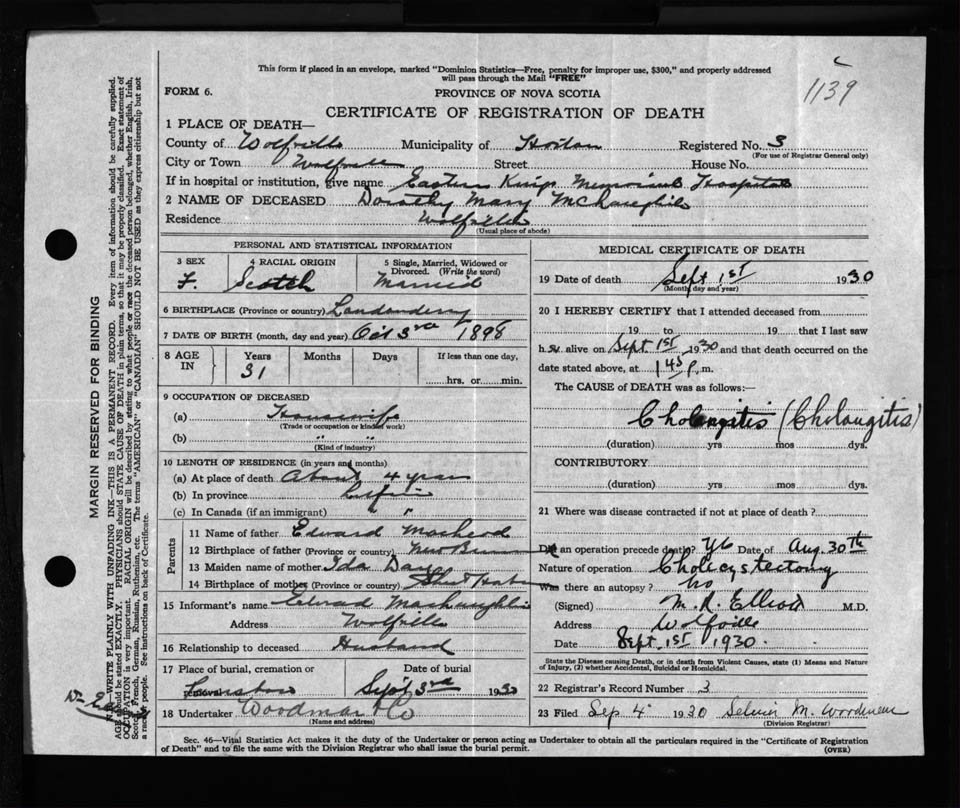 This form if placed in an envelope, marked "Dominion Statistics—Free, penalty for improper use, $300," and properly addressed
will pass through the Mail "FREE"
1139
FORM 6.
PROVINCE OF NOVA SCOTIA
CERTIFICATE OF REGISTRATION OF DEATH
1 PLACE OF DEATH—
County of Wolfville Municipality of Horton Registered No. 3
(For use of Registrar General only)
City or Town Wolfville Street House No.
If in hospital or institution, give name Eastern Kings Memorial Hospital
2 NAME OF DECEASED Dorothy Mary
Residence Wolfville
(Usual place of abode)
PERSONAL AND STATISTICAL INFORMATION
3 SEX 4 RACIAL ORIGIN 5 Single, Married, Widowed or
Divorced. (Write the word)
F. Scotch Married
6 BIRTHPLACE (Province or country) Londonderry
7 DATE OF BIRTH (month, day and year) Oct 3rd 1898
8 AGE IN Years Months Days If less than one day,
31 hrs. or min.
9 OCCUPATION OF DECEASED
(a) Housewife
(Trade or occupation or kind of work)
(b) " "
(Kind of industry)
10 LENGTH OF RESIDENCE (in years and months)
(a) At place of death About 4 years
(b) In province Lifetime
(c) In Canada (if an immigrant) "
Parents
11 Name of father Edward
12 Birthplace of father (Province or country) New
13 Maiden name of mother Ida
14 Birthplace of mother (Province or country)
15 Informant's name
Address Wolfville
16 Relationship to deceased Husband
17 Place of burial, cremation or
removal Date of burial
Sept 3rd 1930
18 Undertaker Woodman & Co
(Name and address)
MEDICAL CERTIFICATE OF DEATH
19 Date of death Sept 1st 1930
(Month, day and year)
20 I HEREBY CERTIFY that I attended deceased from
19 to 19 that I last saw
h er alive on Sept 1st 1930 and that death occurred on the
date stated above, at 1 45 P. m.
The CAUSE of DEATH was as follows:—
Cholangitis (Cholangitis)
(duration) yrs mos dys.
CONTRIBUTORY
(duration) yrs mos dys.
21 Where was disease contracted if not at place of death?
Did an operation precede death? Yes Date of Aug. 30th
Nature of operation Cholecystectomy
Was there an autopsy? no
(Signed) M. R. Elliott M.D.
Address Wolfville
Date Sept 1st 1930.
State the Disease causing Death, or in death from Violent Causes, state (1) Means and Nature
of Injury, (2) whether Accidental, Suicidal or Homicidal.
22 Registrar's Record Number 3
23 Filed Sep 4 1930 M. Woodman
(Division Registrar)
Sec. 46—Vital Statistics Act makes it the duty of the Undertaker or person acting as Undertaker to obtain all the particulars required in the "Certificate of Registration
of Death" and to file the same with the Division Registrar who shall issue the burial permit.
(OVER)
MARGIN RESERVED FOR BINDING
N.B.—WRITE PLAINLY WITH UNFADING INK—THIS IS A PERMANENT RECORD. Every item of information should be carefully supplied.
AGE should be stated EXACTLY. PHYSICIANS should STATE CAUSE OF DEATH in plain terms, so that it may be properly classified. Exact statement of
OCCUPATION is very important. RACIAL ORIGIN will be described by stating to what people or race the deceased person belonged, whether English, Irish,
Scotch, French, German, Russian, Ruthenian, etc. The terms "AMERICAN" or "CANADIAN" SHOULD NOT BE USED as they express citizenship but not
a race or people. See instructions on back of Certificate.